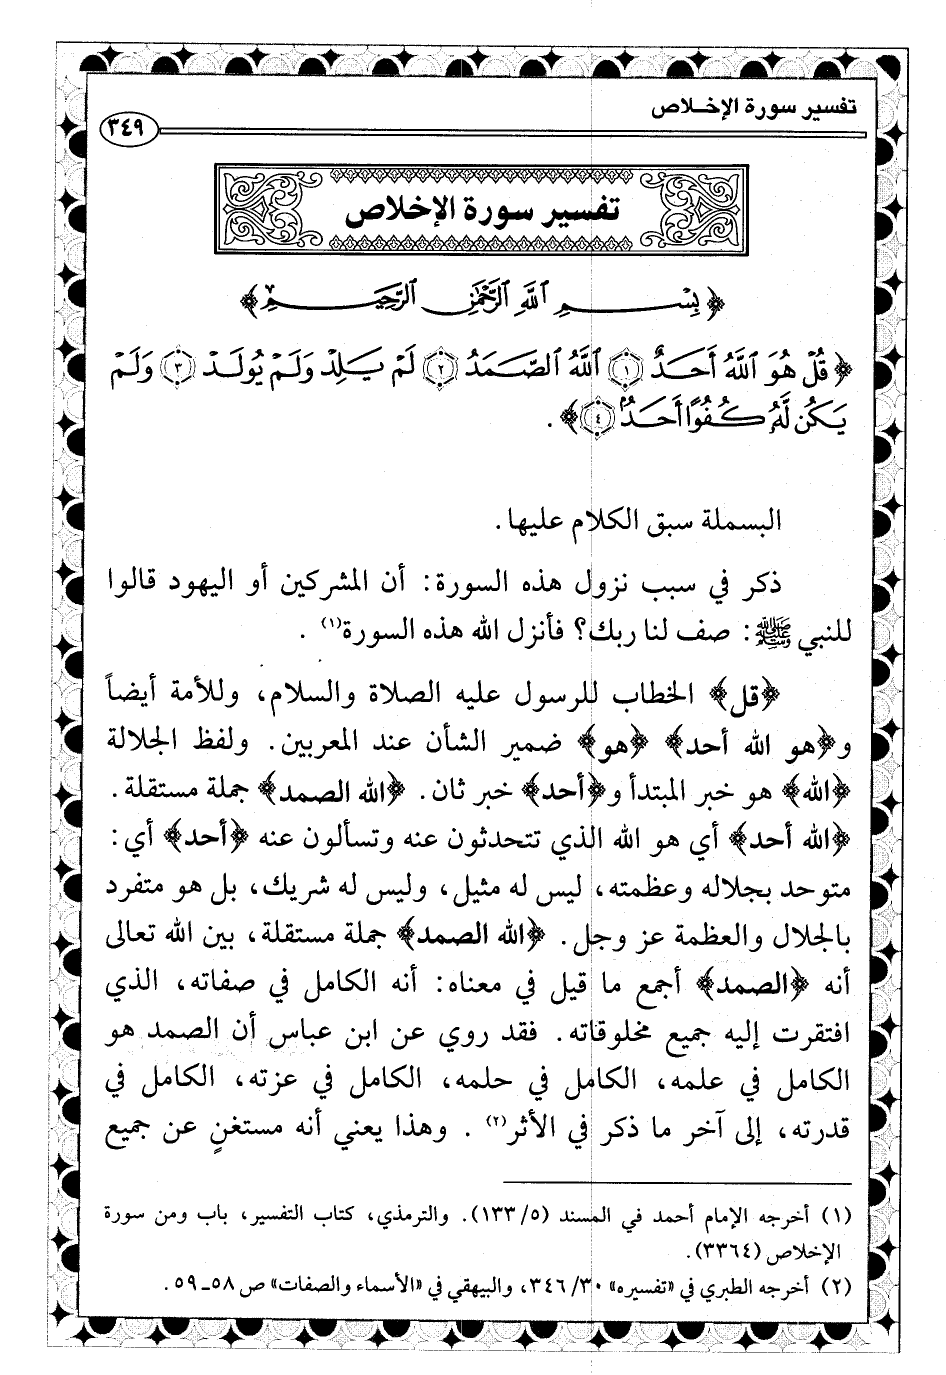 تفسير سورة الإخـلاص
٣٤٩
تفسير سورة الإخلاص
﴿ بِسْمِ اللَّهِ الرَّحْمَٰنِ الرَّحِيمِ ﴾
﴿ قُلْ هُوَ اللَّهُ أَحَدٌ ١ اللَّهُ الصَّمَدُ ٢ لَمْ يَلِدْ وَلَمْ يُولَدْ ٣ وَلَمْ
يَكُن لَّهُ كُفُوًا أَحَدٌ ٤ ﴾ .
البسملة سبق الكلام عليها.
ذكر في سبب نزول هذه السورة: أن المشركين أو اليهود قالوا
للنبي ﷺ: صف لنا ربك؟ فأنزل الله هذه السورة(١) .
﴿قل﴾ الخطاب للرسول عليه الصلاة والسلام، وللأمة أيضاً
و﴿هو الله أحد﴾ ﴿هو﴾ ضمير الشأن عند المعربين. ولفظ الجلالة
﴿الله﴾ هو خبر المبتدأ و﴿أحد﴾ خبر ثان. ﴿الله الصمد﴾ جملة مستقلة.
﴿الله أحد﴾ أي هو الله الذي تتحدثون عنه وتسألون عنه ﴿أحد﴾ أي:
متوحد بجلاله وعظمته، ليس له مثيل، وليس له شريك، بل هو متفرد
بالجلال والعظمة عز وجل. ﴿الله الصمد﴾ جملة مستقلة، بين الله تعالى
أنه ﴿الصمد﴾ أجمع ما قيل في معناه: أنه الكامل في صفاته، الذي
افتقرت إليه جميع مخلوقاته. فقد روي عن ابن عباس أن الصمد هو
الكامل في علمه، الكامل في حلمه، الكامل في عزته، الكامل في
قدرته، إلى آخر ما ذكر في الأثر(٢) . وهذا يعني أنه مستغنٍ عن جميع
(١) أخرجه الإمام أحمد في المسند (١٣٣/٥). والترمذي، كتاب التفسير، باب ومن سورة
الإخلاص (٣٣٦٤).
(٢) أخرجه الطبري في «تفسيره» ٣٤٦/٣٠، والبيهقي في «الأسماء والصفات» ص ٥٨ـ ٥٩ .